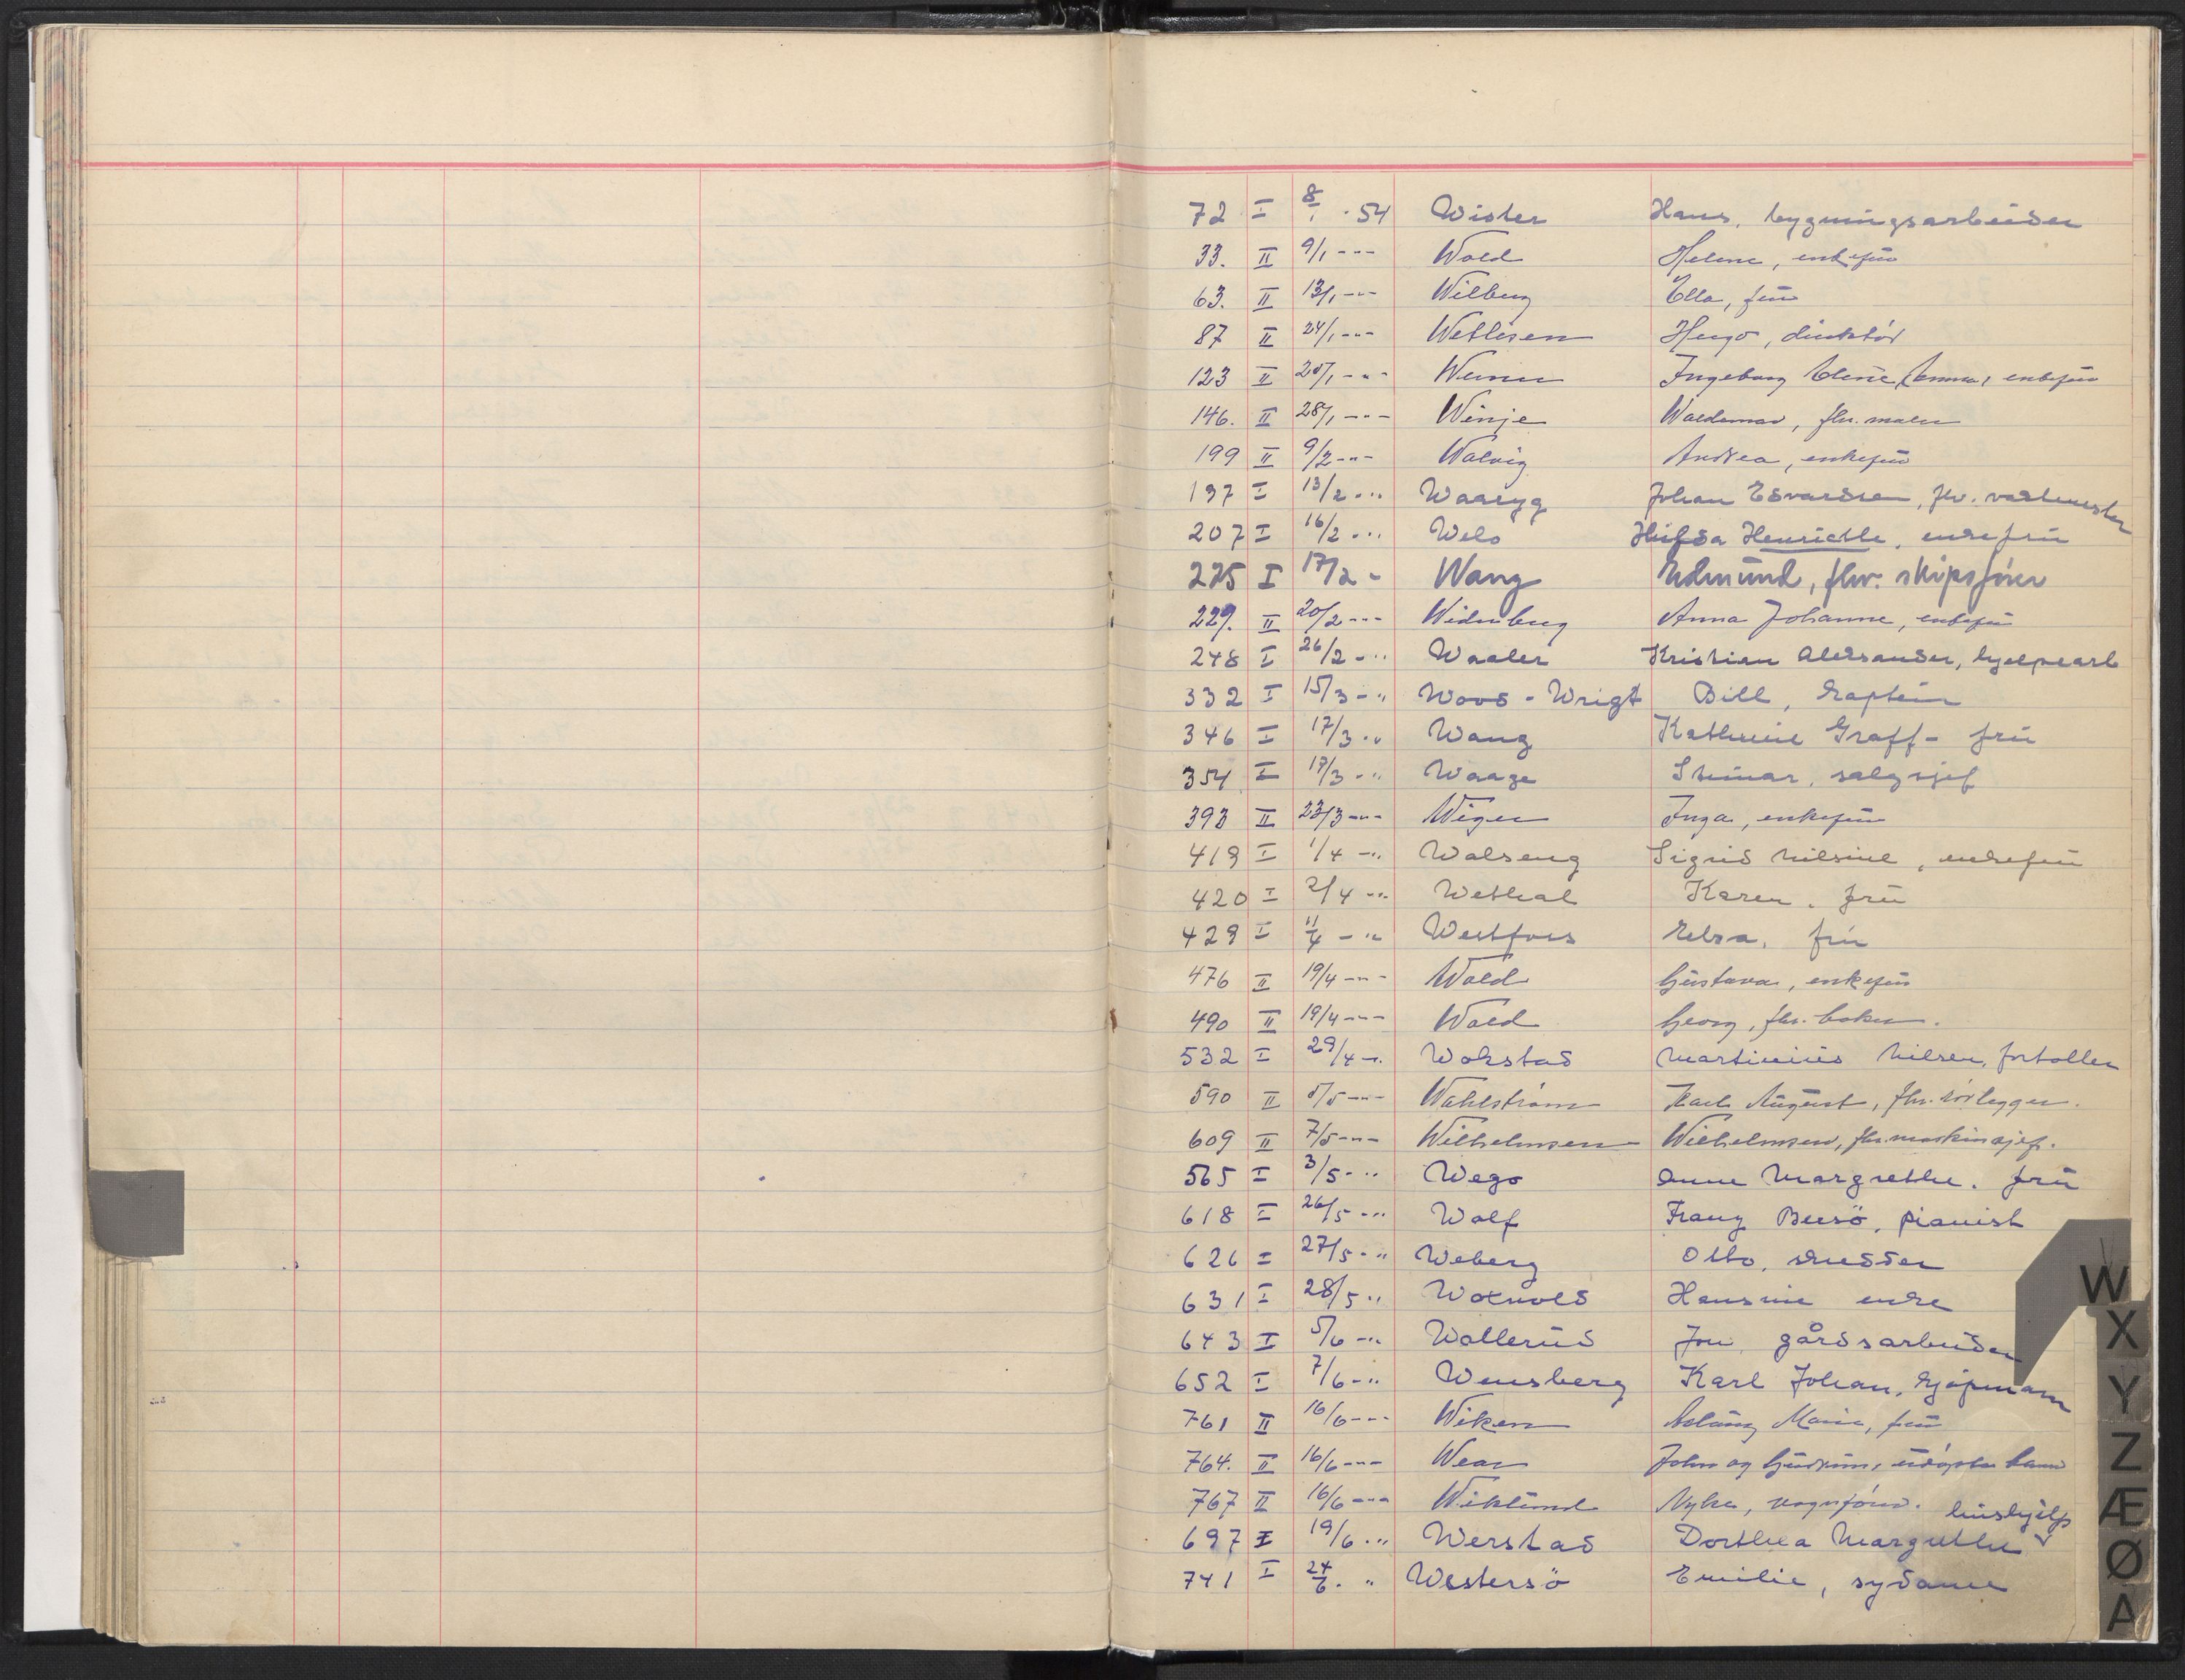 72 I 8/1 · 54 Wister Hans, bygningsarbeider
33. II 9/1 -"- Wold Helene, enkefrü
63. II 13/1 -"- Wilberg Ella, frü
87 II 24/1 -"- Wetlesen Hugo, direktör
123 II 25/1 -"- Werner Ingeborg Elene, enkefrü
146. II 28/1 -"- Winje Waldemar, fhv. maler
199 II 9/2 -"- Walvig Andrea, enkefrü
197 I 13/2 -"- Waaryg Johan Edvardsen, fhv. vaktmester
207 I 16/2 -"- Welo Henriette, enkefrü
225 I 17/2 - Wang Edmünd, fhv. skipsförer
229. II 20/2 -"- Widerberg Anna Johanne, enkefrü
248 I 26/2 -"- Waaler Kristian Aleksander, hjelpearb
332 I 15/3 -" Wood - Wrigt Bill, kaptein
346 I 17/3 -" Wang Kathrine Graff- frü
354 I 17/3 -" Waage Steinar, salgssjef
393 II 23/3 -"- Wiger Inga, enkefrü
419 I 1/4 -" Walseng Sigrid Nilsine, enkefrü
420 I 2/4 -" Wethal Karen, frü
429 I 11/4 -" Westfoss Elsa, frü
476 II 19/4 -"- Wold Güstava, enkefrü
490 II 19/4 -"- Wold Georg, fhv. baker.
532 I 29/4 -" Wokstad Martinius Nilsen, fortoller
590 II 5/5 -"- Wahlström Karl Aügüst, fhv. rörlegger.
609 II 7/5 -"- Wilhelmsen Wilhelmsen, fhv. maskinsjef.
565 I 3/5 -" Wego Anne Margrethe, frü
618 I 26/5 -" Wolf Franz Beesö, pianist
626 I 27/5 -" Weberg Otto, skredder
631 I 28/5 " Woxvold Hansine enke
643 I 5/6 -" Wallerüd Jon, gårdsarbeider
652 I 7/6 -" Wensberg Karl Johan, kjöpmann
761 II 16/6 -"- Wiken Aslaüg Marie, frü
764. II 16/6 -"- Wear John og Güdrün, üdöpte barn
767 II 16/6 -"- Wiklünd vognförer.
697 I 19/6 -" Werstad Dorthea Margrethe hüshjelp
741 I 24/6 . " Westersö Emilie, sydame
W
X
Y
Z
Æ
Ø
A